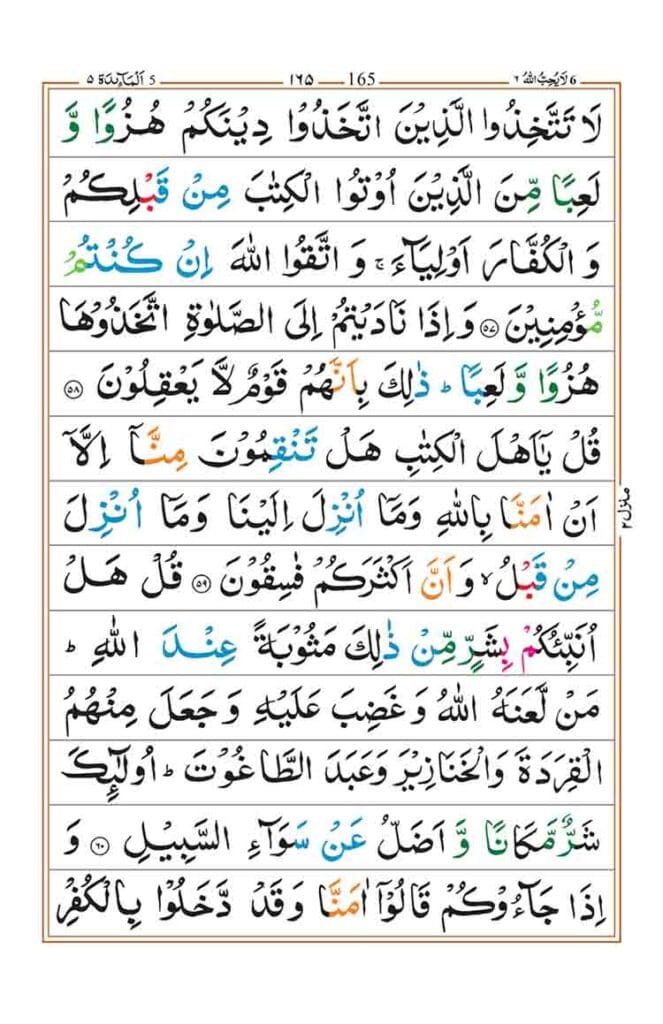 6 لَا يُحِبُّ اللهُ ٦ 165 ١٦٥ 5 اَلْمَآئِدَة ٥
لَا تَتَّخِذُوا الَّذِيْنَ اتَّخَذُوْا دِيْنَكُمْ هُزُوًا وَّ
لَعِبًا مِّنَ الَّذِيْنَ اُوْتُوا الْكِتٰبَ مِنْ قَبْلِكُمْ
وَ الْكُفَّارَ اَوْلِيَآءَ ۚ وَ اتَّقُوا اللهَ اِنْ كُنْتُمْ
مُّؤْمِنِيْنَ ﴿٥٧﴾ وَاِذَا نَادَيْتُمْ اِلَى الصَّلٰوةِ اتَّخَذُوْهَا
هُزُوًا وَّ لَعِبًا ؕ ذٰلِكَ بِاَنَّهُمْ قَوْمٌ لَّا يَعْقِلُوْنَ ﴿٥٨﴾
قُلْ يٰۤاَهْلَ الْكِتٰبِ هَلْ تَنْقِمُوْنَ مِنَّاۤ اِلَّاۤ
اَنْ اٰمَنَّا بِاللهِ وَمَاۤ اُنْزِلَ اِلَيْنَا وَمَاۤ اُنْزِلَ
مِنْ قَبْلُ ۙ وَ اَنَّ اَكْثَرَكُمْ فٰسِقُوْنَ ﴿٥٩﴾ قُلْ هَلْ
اُنَبِّئُكُمْ بِشَرٍّ مِّنْ ذٰلِكَ مَثُوْبَةً عِنْدَ اللهِ ؕ
مَنْ لَّعَنَهُ اللهُ وَ غَضِبَ عَلَيْهِ وَ جَعَلَ مِنْهُمُ
الْقِرَدَةَ وَالْخَنَازِيْرَ وَعَبَدَ الطَّاغُوْتَ ؕ اُولٰٓئِكَ
شَرٌّ مَّكَانًا وَّ اَضَلُّ عَنْ سَوَآءِ السَّبِيْلِ ﴿٦٠﴾ وَ
اِذَا جَآءُوْكُمْ قَالُوْۤا اٰمَنَّا وَ قَدْ دَّخَلُوْا بِالْكُفْرِ
منزل ٢